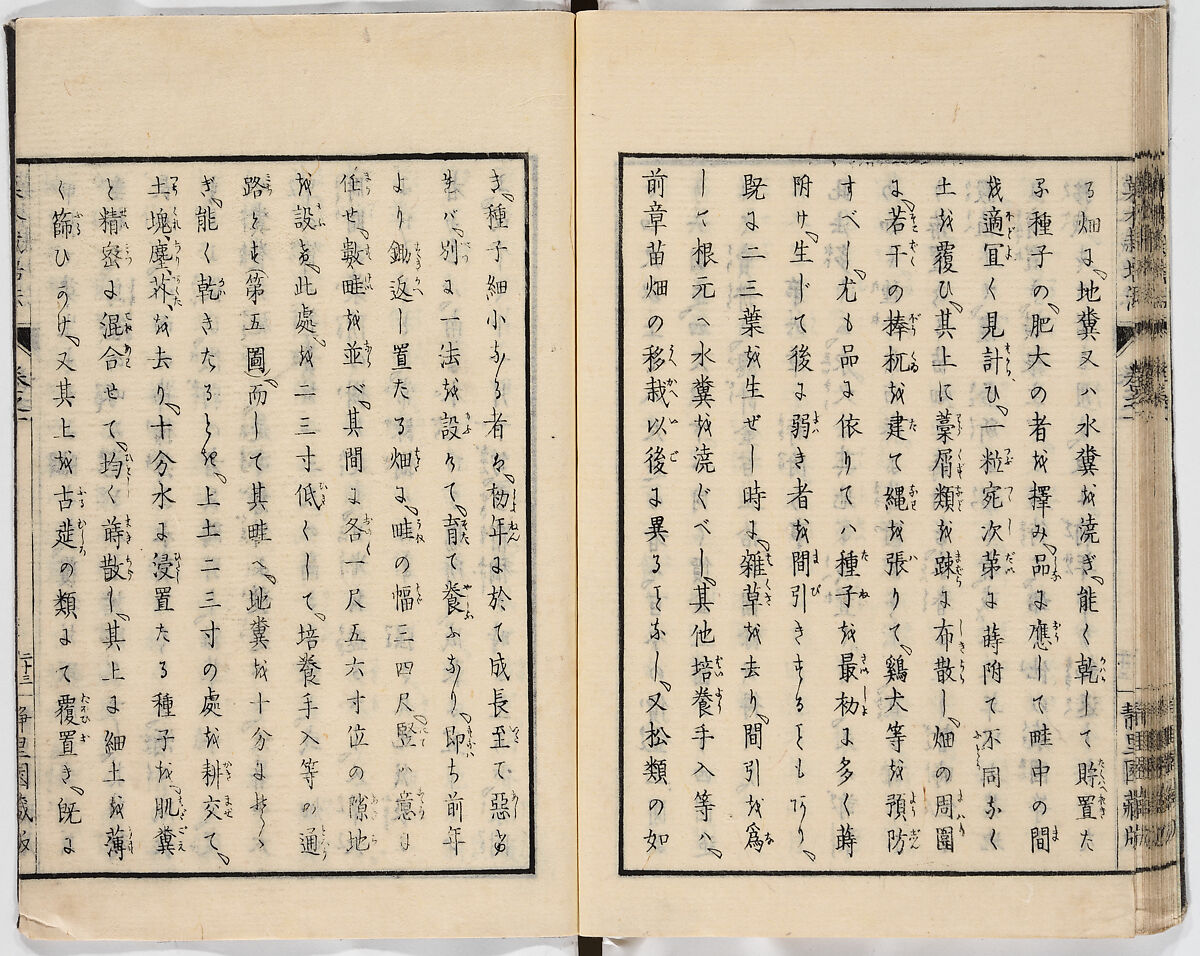 る畑は、地糞又ハ水糞を澆ぎ、能く乾して貯置た
る種子の、肥大の者を擇み、品に應して畦中の間
を適冝く見計ひ、一粒宛次苐に蒔附て不同なく
土を覆ひ、其上に藁屑類を踈に布散し、畑の周圍
に、若干の棒杭を建て縄を張りて、鷄犬等を預防
すべし、尤も品に依りてハ種子を最初に多く蒔
附け、生じて後に弱き者を間引きする𪜈もあり、
既に二三葉を生ぜし時は、雜草を去り、間引を爲
して根元へ水糞を澆ぐべし、其他培養手入等ハ、
前章苗畑の移栽以後に異る𪜈なし、又松類の如
き、種子細小なる者は、初年に於て成長至て惡き
ものゆへ、別に一法を設けて、育て養ふなり、即ち前年
より鋤返し置たる畑に、畦の幅三四尺竪ハ意に
任せ、數畦を並べ、其間に各一尺五六寸位の隙地
を設け、此處を二三寸低くして、培養手入等の通
路とす(第五圖)而して其畦へ、地糞を十分にそゝ
ぎ、能く乾きたるとき、上土二三寸の處を耕交て、
土塊塵芥を去り、十分水に浸置たる種子を、肌糞
と精密に混合せて、均く蒔散し、其上に細土を薄
く篩ひかけ、又其上を古莚の類にて覆置き、既に
卷之一
靜里園藏版
卷之一
二十三
靜里園藏版